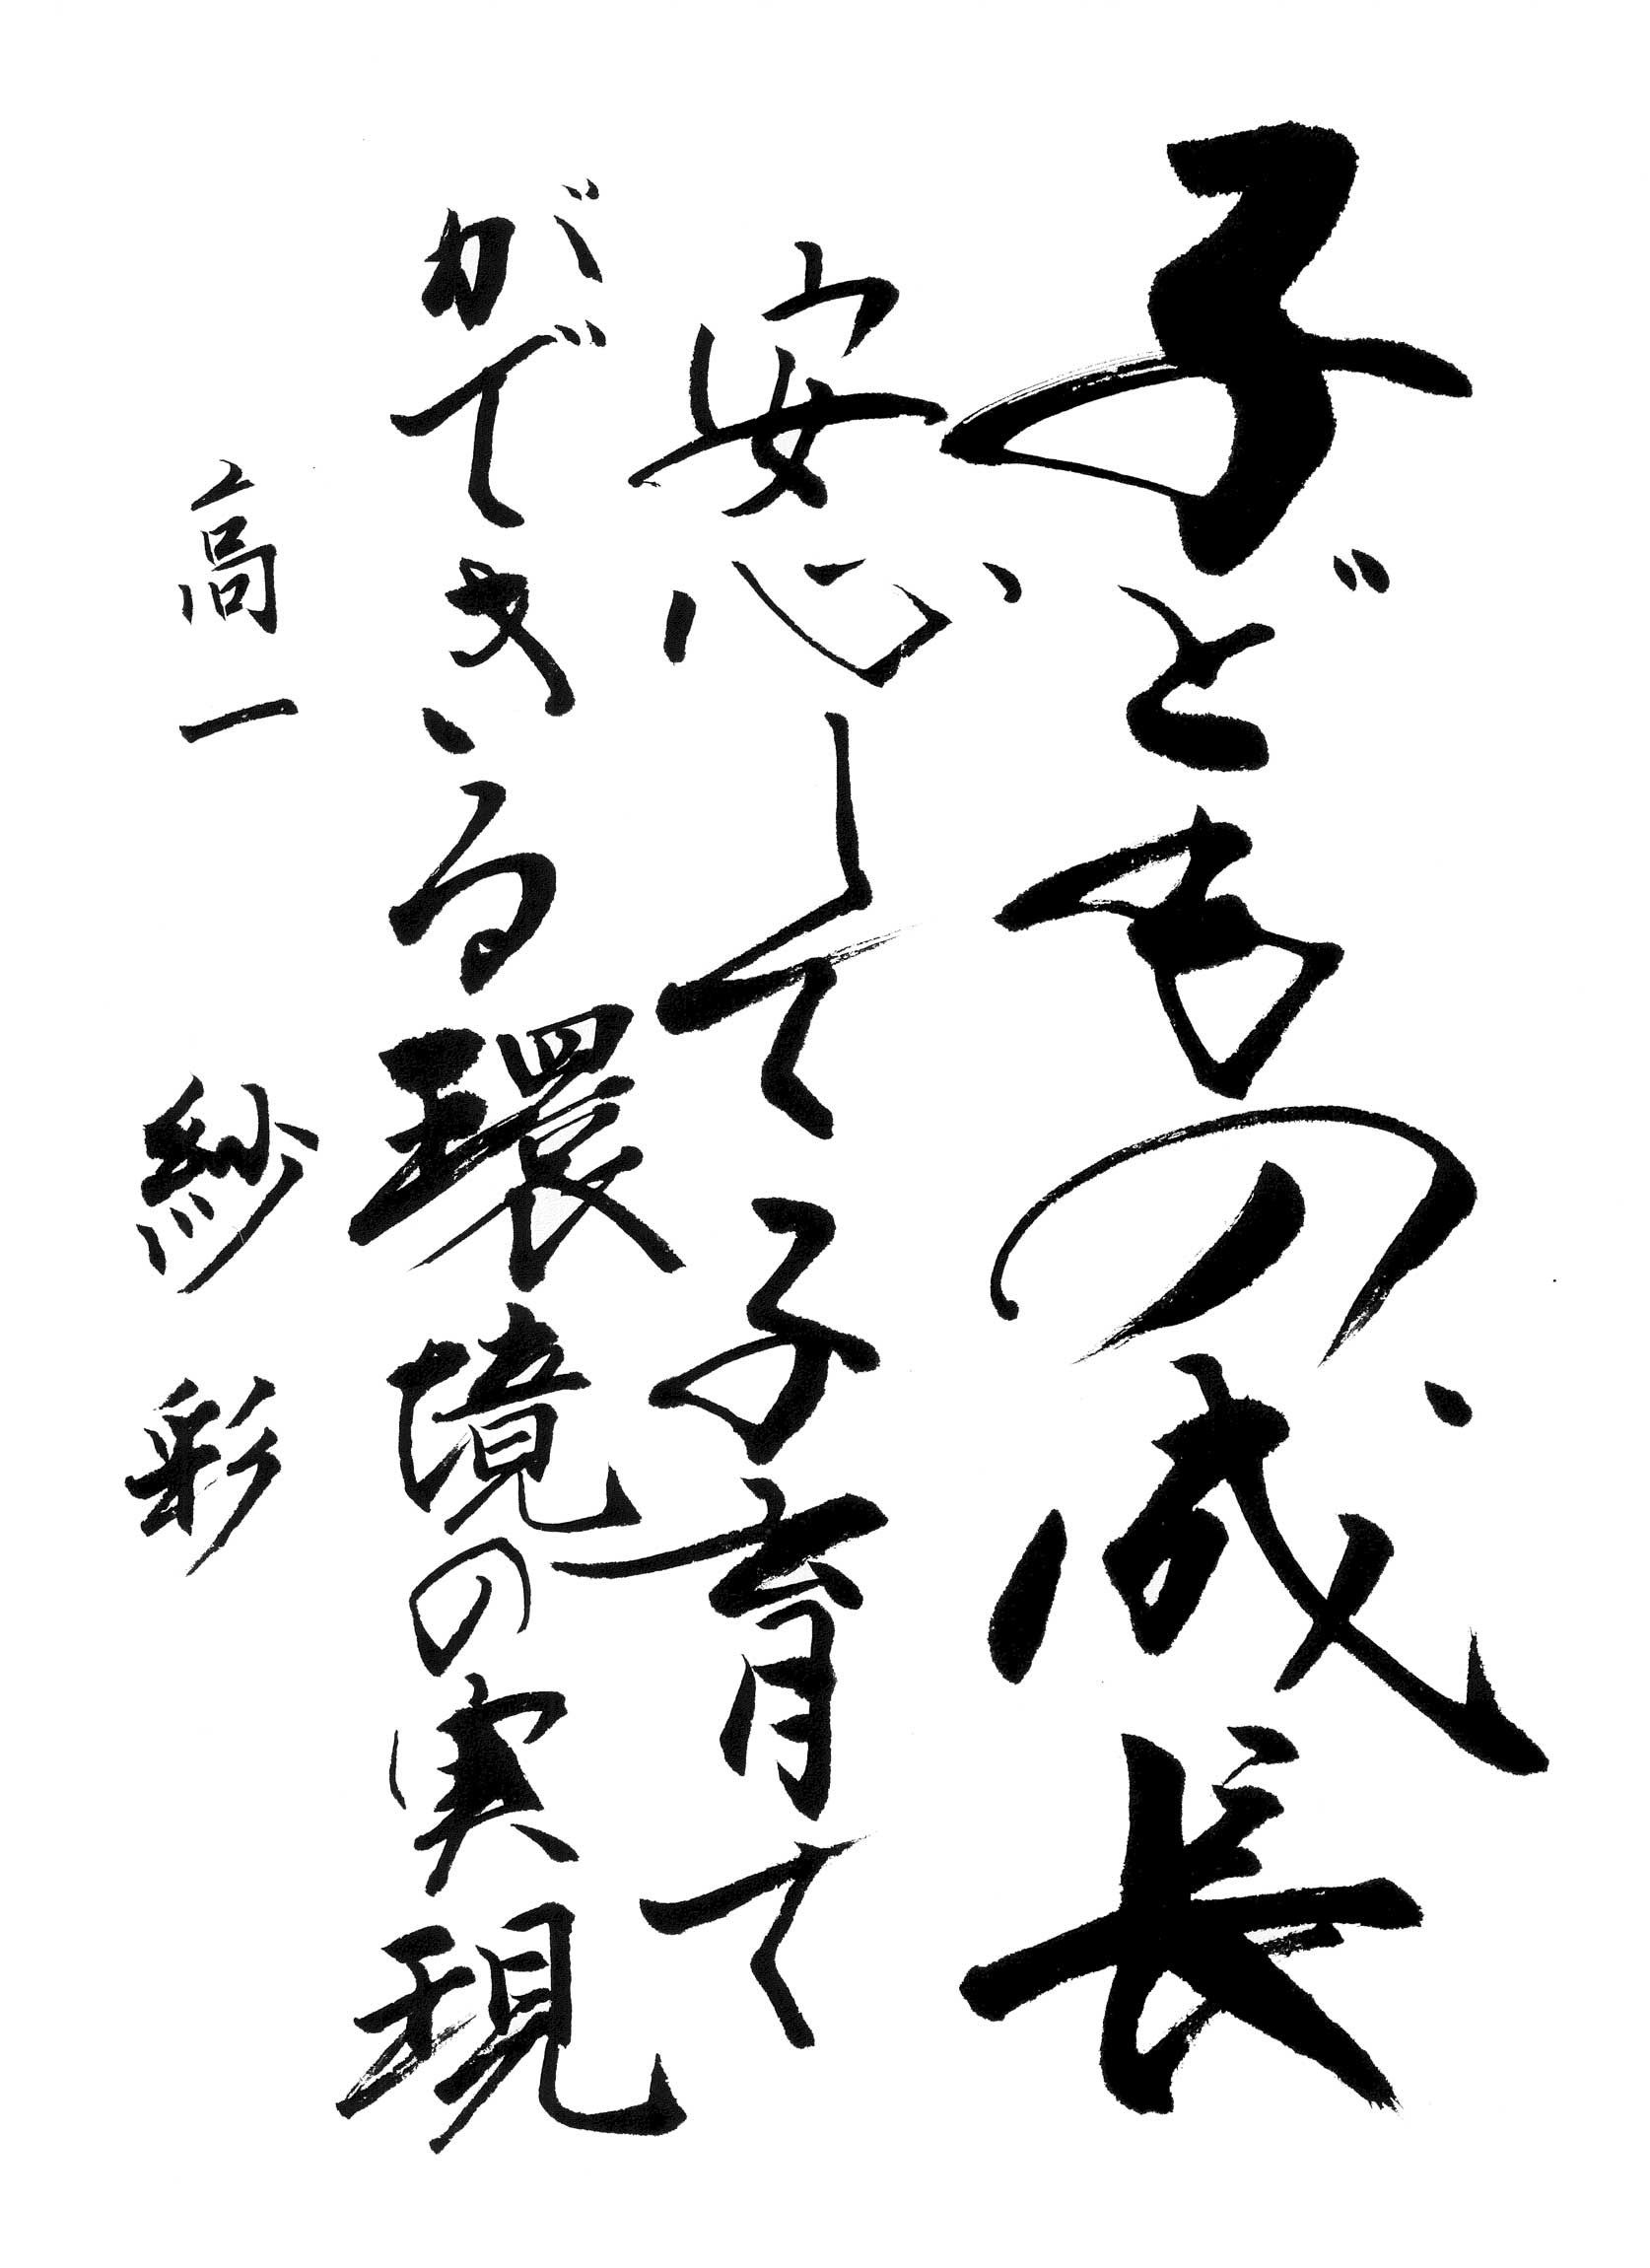 子どもの成長
安心して子育て
ができる環境の実現
高一 紗彩